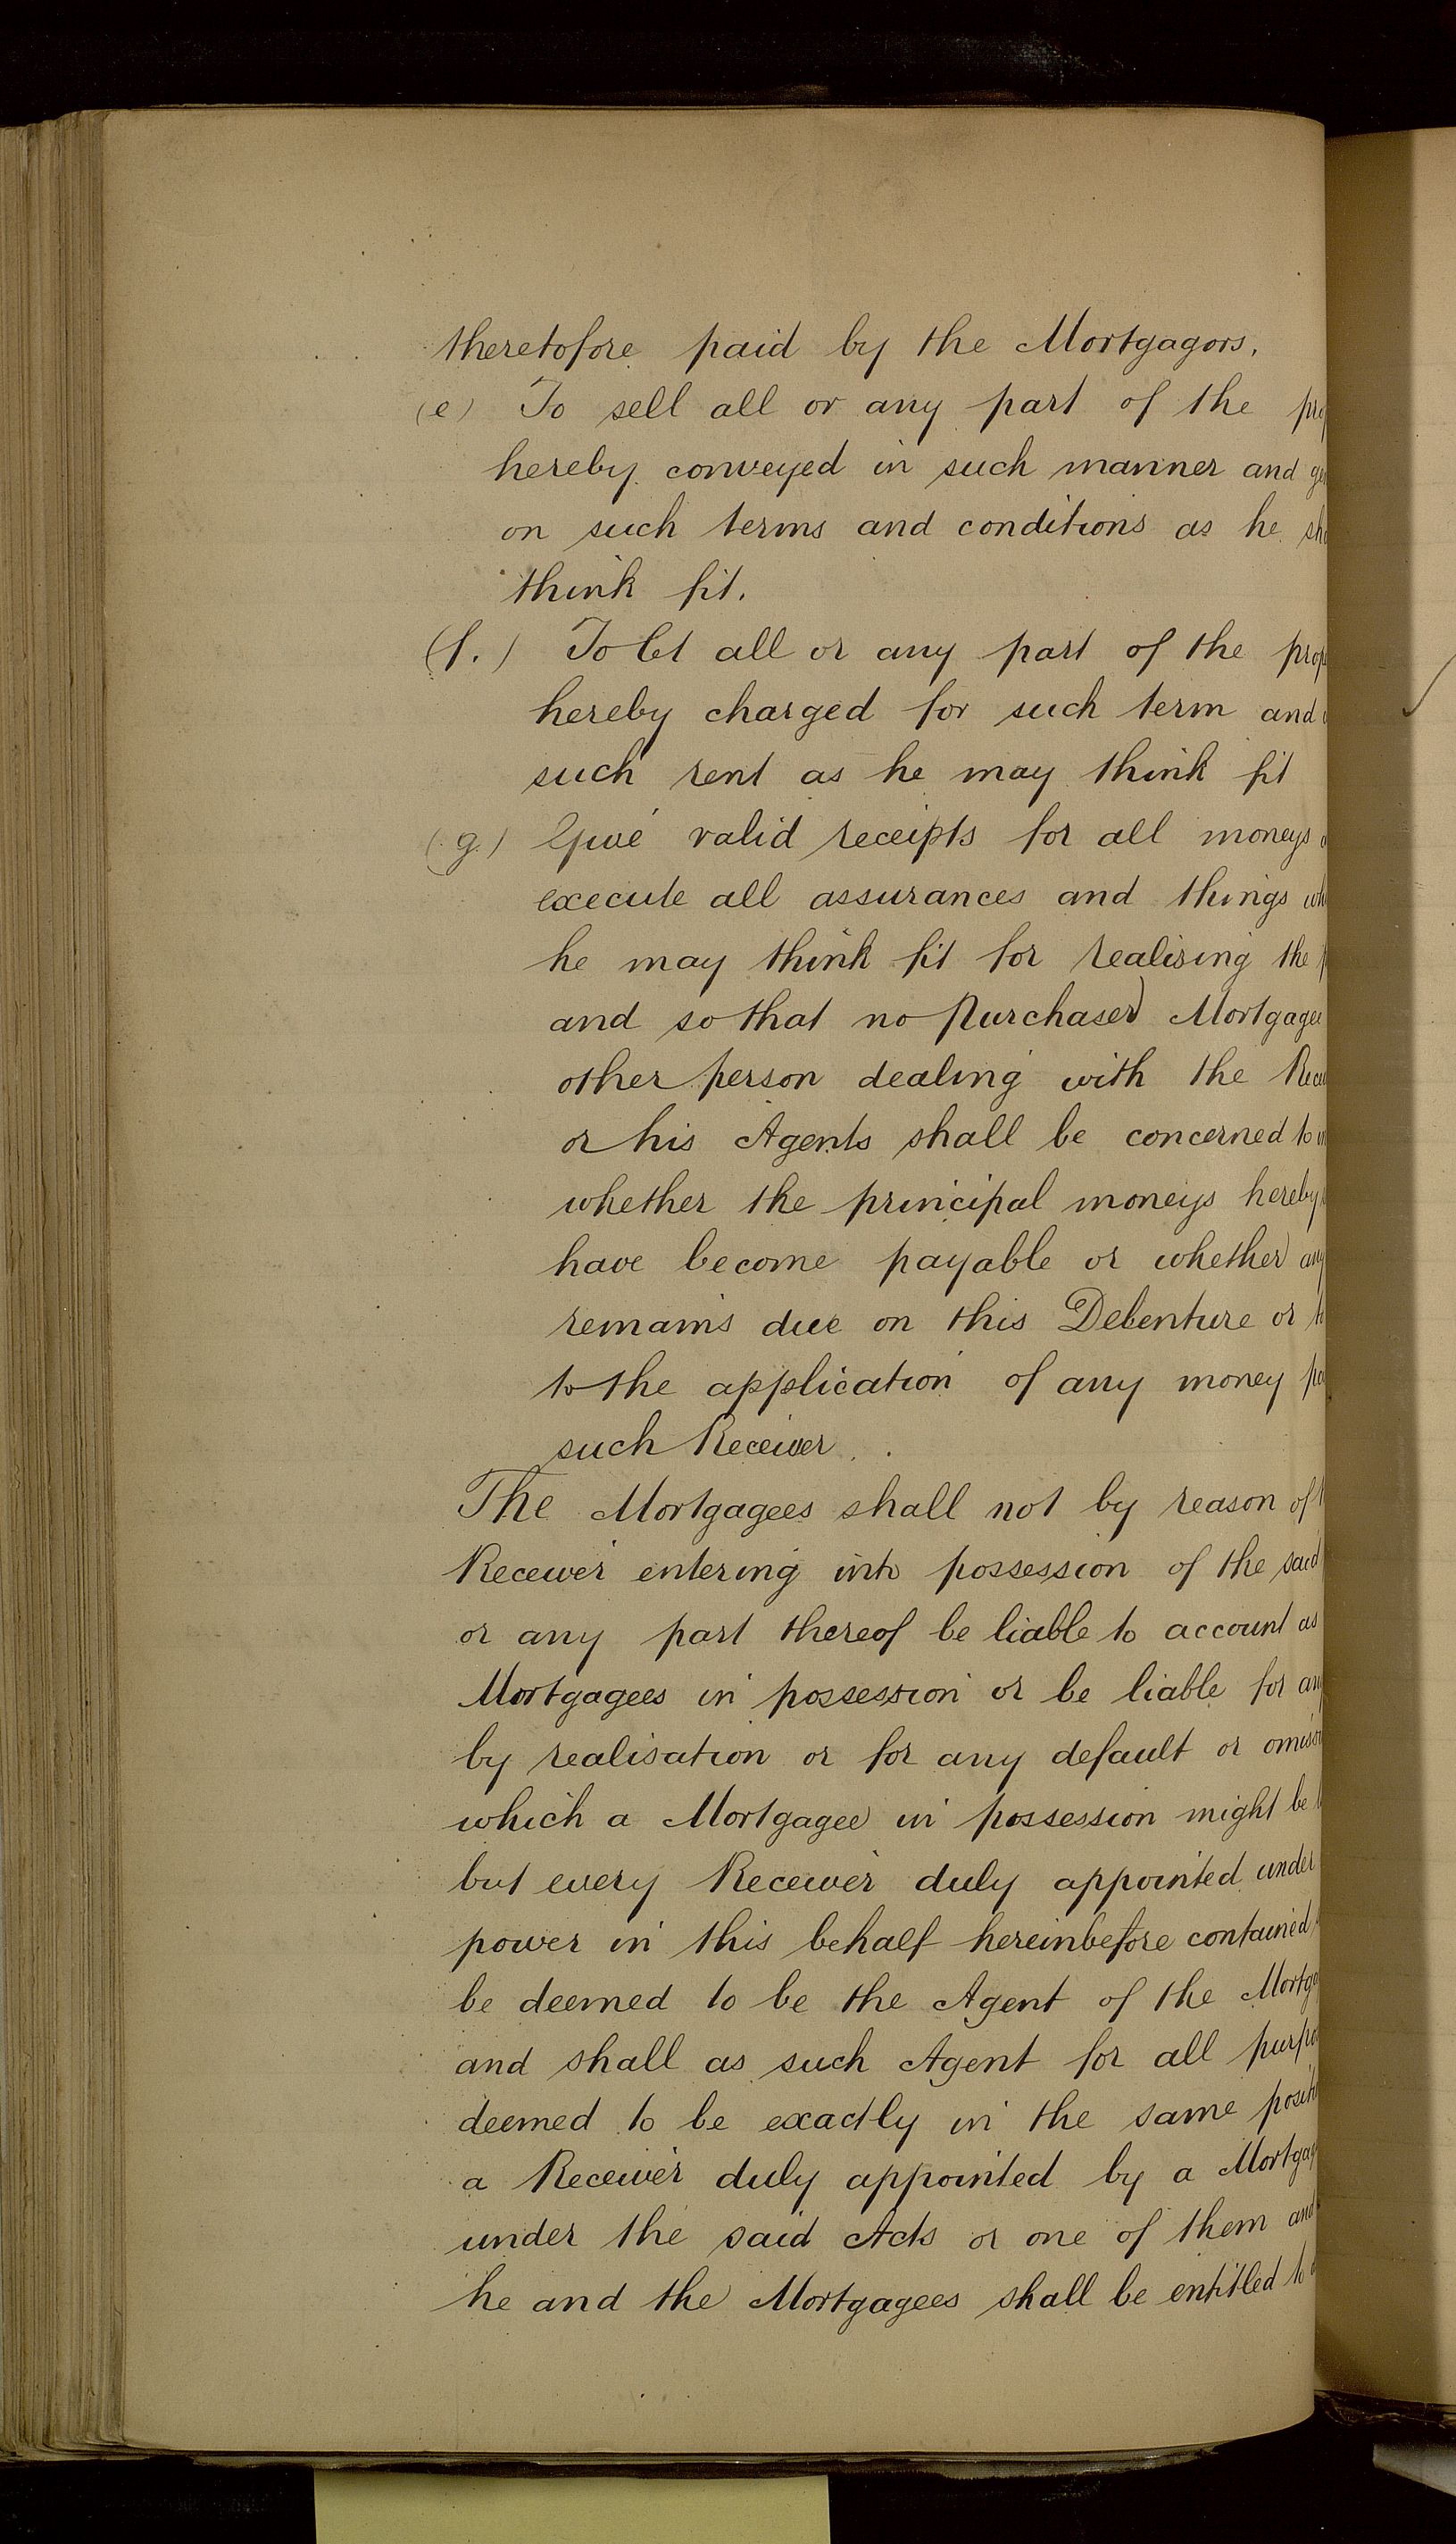 theretofore paid by the Mortgagors.
(e) To sell all or any part of the
hereby conveyed in such manner and
on such terms and conditions as he
think fit.
(f.) To let all or any part of the
hereby charged for such term and
such rent as he may think fit
(g) Give valid receipts for all moneys
execute all assurances and things
he may think fit for realising the
and so that no Purchaser Mortgagee
other person dealing with the
or his Agents shall be concerned to
whether the principal moneys hereby
have become payable or whether any
remains due on this Debenture or
to the application of any money
such Receiver.
The Mortgagees shall not by reason of
Receiver entering into possession of the said
or any part thereof be liable to account as
Mortgagees in possession or be liable for any
by realisation or for any default or
which a Mortgagee in possession might be
but every Receiver duly appointed under
power in this behalf hereinbefore contained
be deemed to be the Agent of the
and shall as such Agent for all
deemed to be exactly in the same
a Receiver duly appointed by a
under the said Acts or one of them and
he and the Mortgagees shall be entitled to